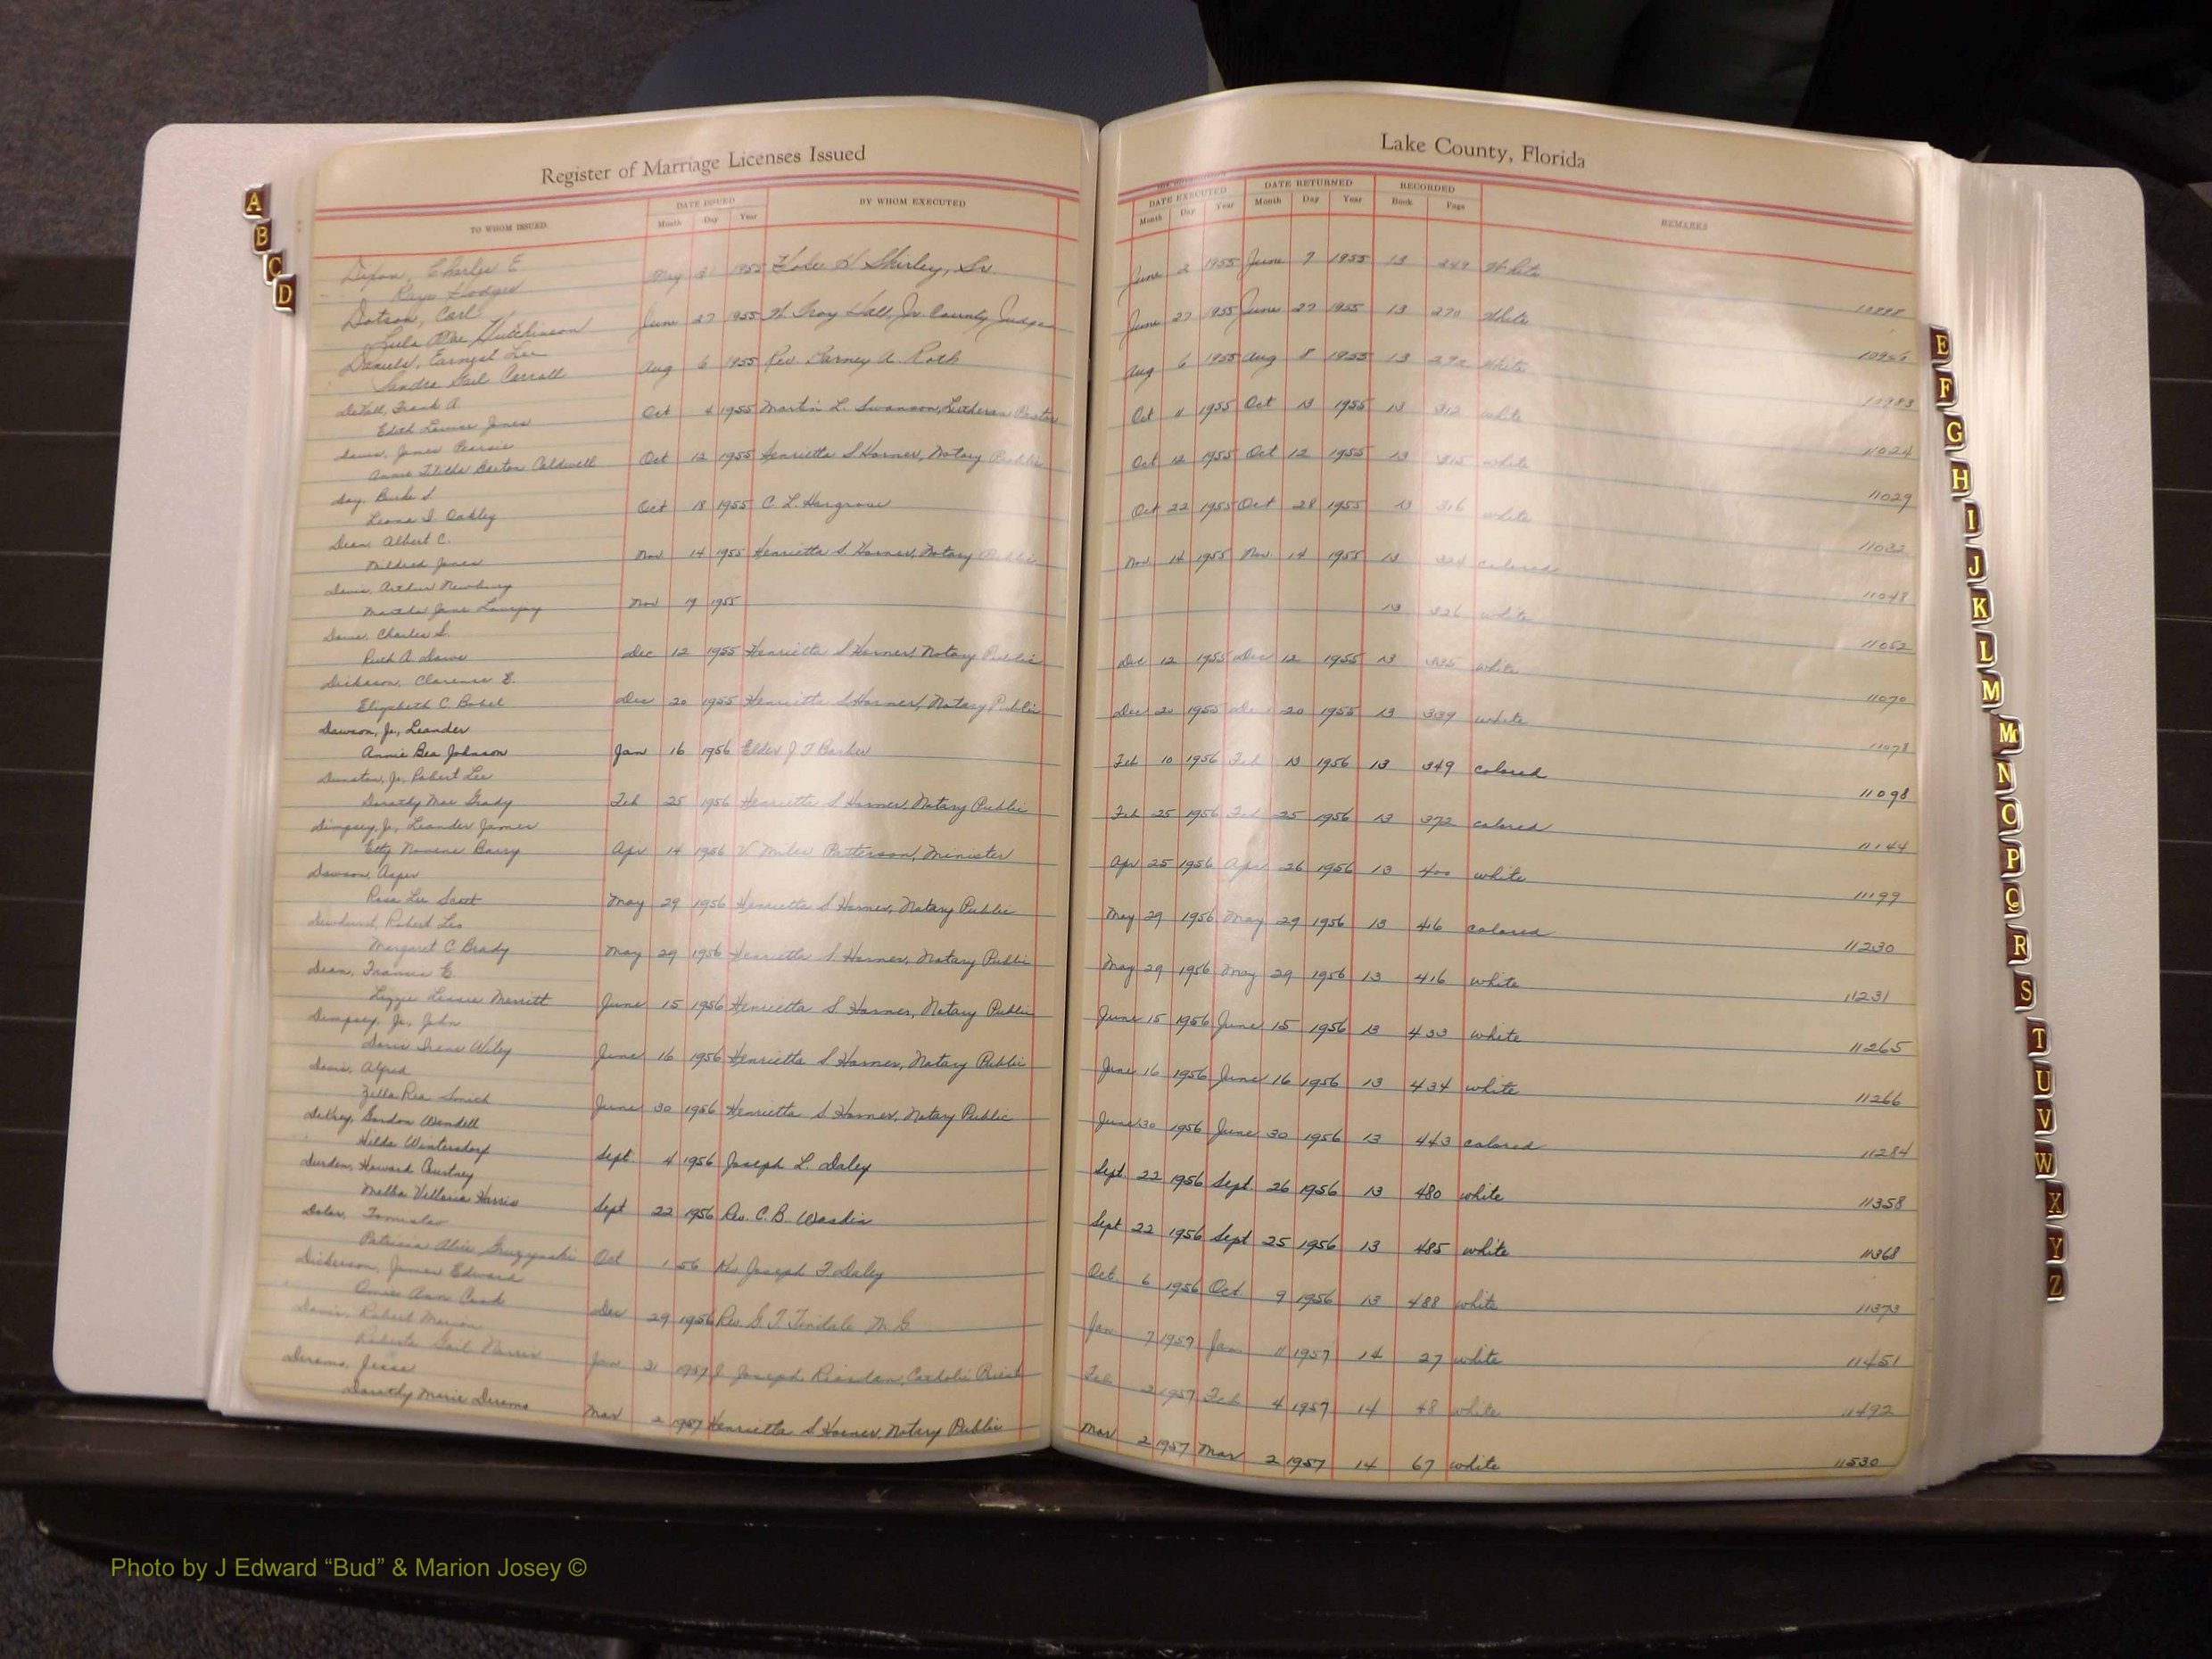 Register of Marriage Licenses Issued
TO WHOM ISSUED DATE ISSUED Month Day Year BY WHOM EXECUTED
Dixon, Charles E. May 31 1955 H Shirley, Sr.
Kaye Hodges
Dotson, Carl June 27 1955 W. Troy Hall, Jr. County Judge
Lula Mae Hutchinson
Daniels, Earnest Lee Aug 6 1955 Rev. A. Roth
Sandra Gail Carroll
Frank A. Oct 4 1955 Martin L. Swanson, Lutheran Pastor
Edith Louise Jones
Davis, James Oct 12 1955 Henrietta S Harner, Notary Public
Annie Barton Caldwell
Day, Burke S. Oct 18 1955 C. L. Hargrove
Leona I. Oakley
Dean, Albert C. Nov 14 1955 Henrietta S. Harner, Notary Public
Mildred Jones
Davis, Arthur Nov 19 1955
Martha Jane Lovejoy
Charles S. Dec 12 1955 Henrietta S Harner, Notary Public
Ruth A.
Dickason, Clarence E. Dec 20 1955 Henrietta S Harner, Notary Public
Elizabeth C.
Dawson, Jr., Leander Jan 16 1956 Elder J T
Annie Bea Johnson
Dunston, Jr., Robert Lee Feb 25 1956 Henrietta S Harner, Notary Public
Dorothy Mae Grady
Dimpsey, Jr., Leander James Apr 14 1956 V Miles Patterson, Minister
Barry
Dawson, May 29 1956 Henrietta S Harner, Notary Public
Rosa Lee Scott
Dewhurst, Robert Leo May 29 1956 Henrietta S Harner, Notary Public
Margaret C. Brady
Dean, Francis E. June 15 1956 Henrietta S Harner, Notary Public
Lizzie Lessie Merritt
Dempsey, Jr., John June 16 1956 Henrietta S Harner, Notary Public
Doris Irene Wiley
Davis, Alfred June 30 1956 Henrietta S Harner, Notary Public
Zella Rea
Gordon Wendell Sept. 4 1956 Joseph L. Daley
Hilda Wintersdorf
Durden, Howard Sept 22 1956 Rev. C. B. Wasdin
Melba Harris
Oct 1 56 Joseph Daley
Patricia Alice
Dickerson, James Edward Dec 29 1956 Rev. G. T. Tindale M. G
Ann Cook
Davis, Robert Marion Jan 31 1957 Joseph Riordan, Catholic Priest
Roberta Gail
Derems, Jesse Mar 2 1957 Henrietta S Harner, Notary Public
Dorothy Marie Derems
Lake County, Florida
DATE EXECUTED Month Day Year DATE RETURNED Month Day Year RECORDED Book Page REMARKS
June 2 1955 June 7 1955 13 249 White
June 27 1955 June 27 1955 13 270 White
Aug 6 1955 Aug 8 1955 13 White 10983
Oct 11 1955 Oct 13 1955 13 312 white 11024
Oct 12 1955 Oct 12 1955 13 315 white 11029
Oct 22 1955 Oct 28 1955 13 316 white 11032
Nov 14 1955 Nov. 14 1955 13 324 colored 11048
13 326 white 11052
Dec 12 1955 Dec 12 1955 13 335 white 11070
Dec 20 1955 Dec 20 1955 13 339 white 11078
Feb 10 1956 Feb 13 1956 13 349 colored 11098
Feb 25 1956 Feb 25 1956 13 372 colored 11144
Apr 25 1956 Apr 26 1956 13 400 white 11199
May 29 1956 May 29 1956 13 416 colored 11230
May 29 1956 May 29 1956 13 416 white 11231
June 15 1956 June 15 1956 13 433 white 11265
June 16 1956 June 16 1956 13 434 white 11266
June 30 1956 June 30 1956 13 443 colored 11284
Sept. 22 1956 Sept. 26 1956 13 480 white 11358
Sept 22 1956 Sept 25 1956 13 485 white 11368
Oct. 6 1956 Oct 9 1956 13 488 white 11373
Jan 7 1957 Jan 11 1957 14 27 white 11451
Feb 2 1957 Feb 4 1957 14 48 white 11492
Mar 2 1957 Mar 2 1957 14 67 white 11530
A
B
C
D
E
F
G
H
I
J
K
L
M
Mc
N
O
P
Q
R
S
T
U
V
W
X
Y
Z
Photo by J Edward “Bud” & Marion Josey ©